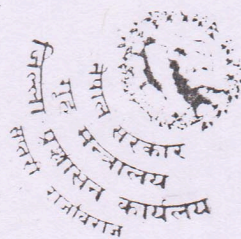 नेपाल सरकार
गृह मन्त्रालय
जिल्ला प्रशासन कार्यलय
सप्तरी
राजविराज